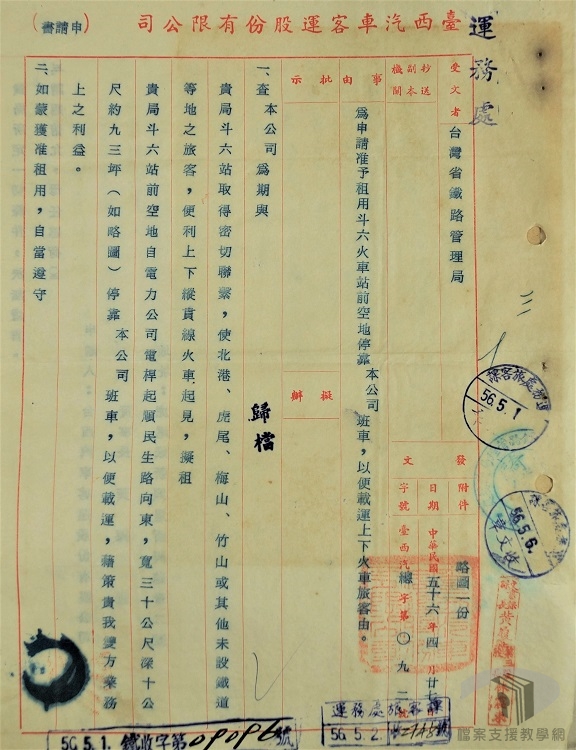 臺西汽車客運股份有限公司
(申請書)
運務處
受文者
台灣省鐵路管理局
抄送副本機關
事由
為申請准予租用斗六火車站前空地停靠本公司班車，以便載運上下火車旅客由。
批示
擬辦
發文
附件
略圖一份
日期
中華民國五十六年四月廿七
字號
臺西汽總字第〇九二
歸檔
一、查本公司為期與
貴局斗六站取得密切聯繫，使北港、虎尾、梅山、竹山或其他未設鐵道
等地之旅客，便利上下縱貫線火車起見，擬租
貴局斗六站前空地自電力公司電桿起順民生路向東，寬三十公尺深十公
尺約九三坪（如略圖）停靠本公司班車，以便載運，藉策貴我雙方業務
上之利益。
二、如蒙獲准租用，自當遵守
運務處旅客課
56.5.1
56.5.6.
收文章
運務處旅客課
56.5.2
56.5.1.鐵收字第09096號
檔案支援教學網